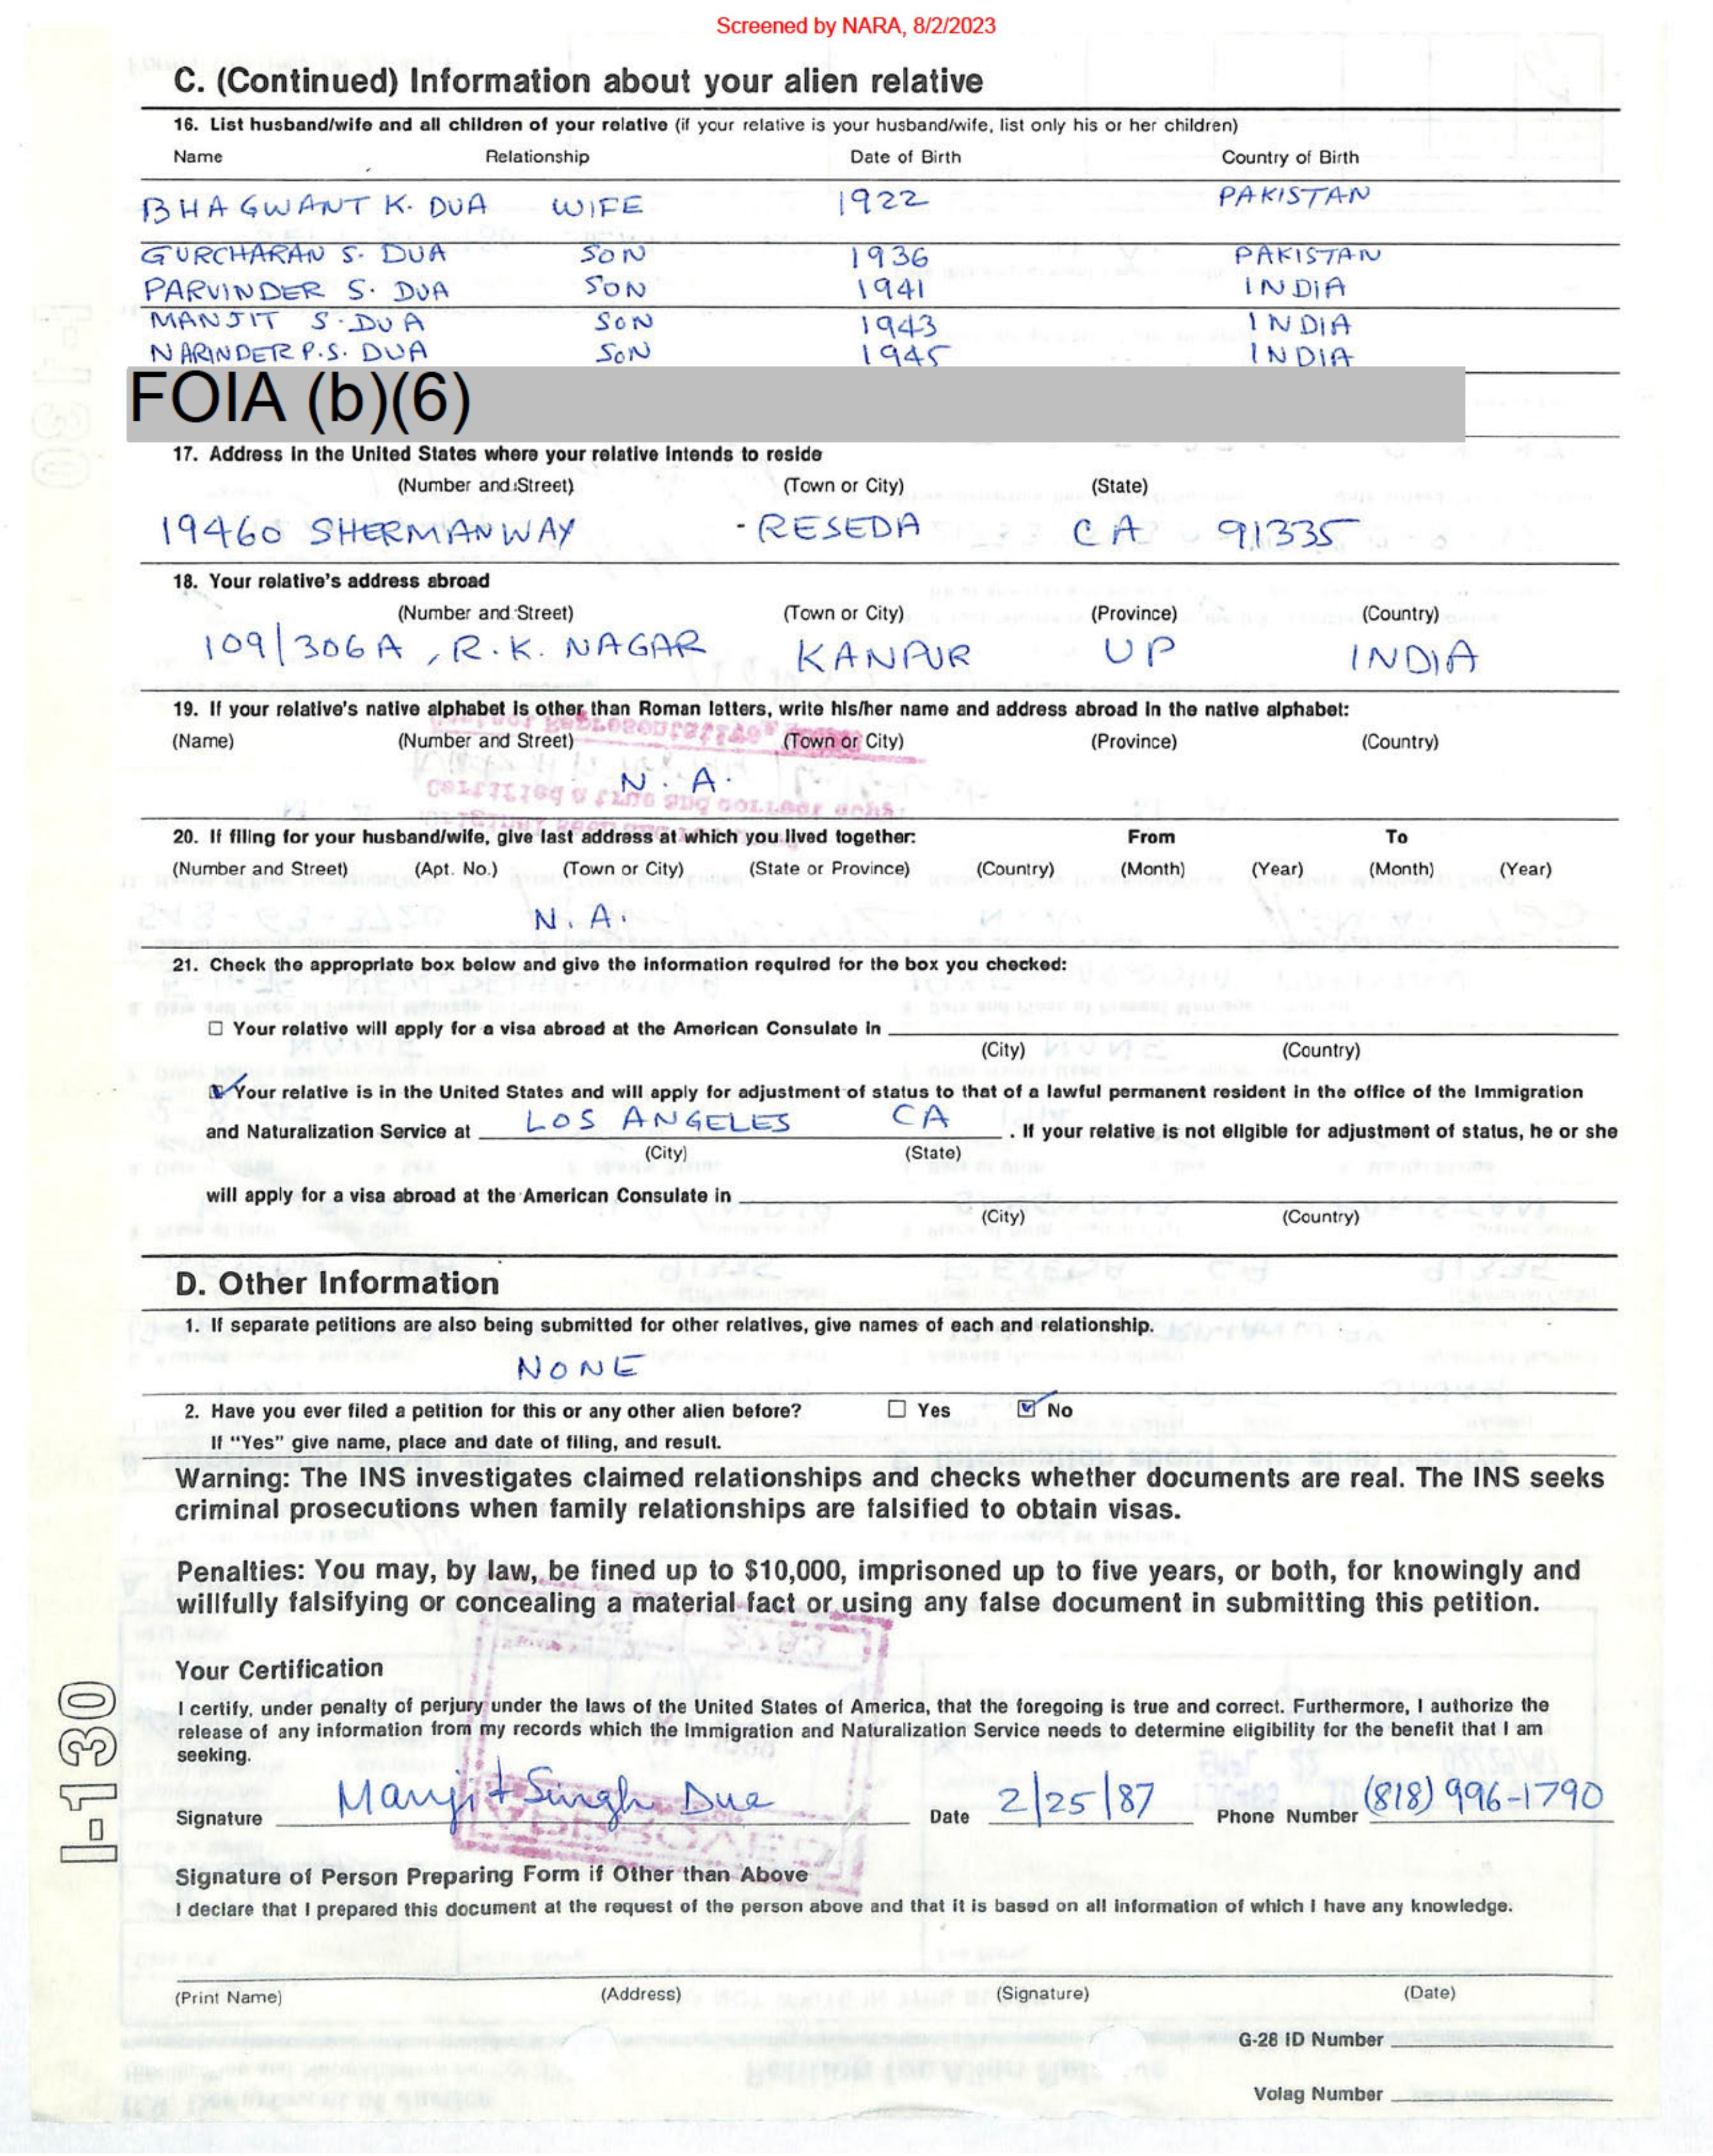 Screened by NARA, 8/2/2023
C. (Continued) Information about your alien relative
16. List husband/wife and all children of your relative (if your relative is your husband/wife, list only his or her children)
Name Relationship Date of Birth Country of Birth
BHAGWANT K. DUA WIFE 1922 PAKISTAN
GURCHARAN S. DUA SON 1936 PAKISTAN
PARVINDER S. DUA SON 1941 INDIA
MANJIT S. DUA SON 1943 INDIA
NARINDER P.S. DUA SON 1945 INDIA
FOIA (b)(6)
17. Address in the United States where your relative intends to reside
(Number and Street) (Town or City) (State)
19460 SHERMANWAY - RESEDA CA 91335
18. Your relative's address abroad
(Number and Street) (Town or City) (Province) (Country)
109/306A, R.K. NAGAR KANPUR UP INDIA
19. If your relative's native alphabet is other than Roman letters, write his/her name and address abroad in the native alphabet:
(Name) (Number and Street) (Town or City) (Province) (Country)
N. A.
20. If filing for your husband/wife, give last address at which you lived together: From To
(Number and Street) (Apt. No.) (Town or City) (State or Province) (Country) (Month) (Year) (Month) (Year)
N. A.
21. Check the appropriate box below and give the information required for the box you checked:
☐ Your relative will apply for a visa abroad at the American Consulate in
(City) (Country)
☑ Your relative is in the United States and will apply for adjustment of status to that of a lawful permanent resident in the office of the Immigration
and Naturalization Service at LOS ANGELES CA . If your relative is not eligible for adjustment of status, he or she
(City) (State)
will apply for a visa abroad at the American Consulate in
(City) (Country)
D. Other Information
1. If separate petitions are also being submitted for other relatives, give names of each and relationship.
NONE
2. Have you ever filed a petition for this or any other alien before? ☐ Yes ☑ No
If "Yes" give name, place and date of filing, and result.
Warning: The INS investigates claimed relationships and checks whether documents are real. The INS seeks
criminal prosecutions when family relationships are falsified to obtain visas.
Penalties: You may, by law, be fined up to $10,000, imprisoned up to five years, or both, for knowingly and
willfully falsifying or concealing a material fact or using any false document in submitting this petition.
Your Certification
I certify, under penalty of perjury under the laws of the United States of America, that the foregoing is true and correct. Furthermore, I authorize the
release of any information from my records which the Immigration and Naturalization Service needs to determine eligibility for the benefit that I am
seeking.
Signature Manjit Singh Dua Date 2/25/87 Phone Number (818) 996-1790
Signature of Person Preparing Form if Other than Above
I declare that I prepared this document at the request of the person above and that it is based on all information of which I have any knowledge.
(Print Name) (Address) (Signature) (Date)
G-28 ID Number
Volag Number
I-130